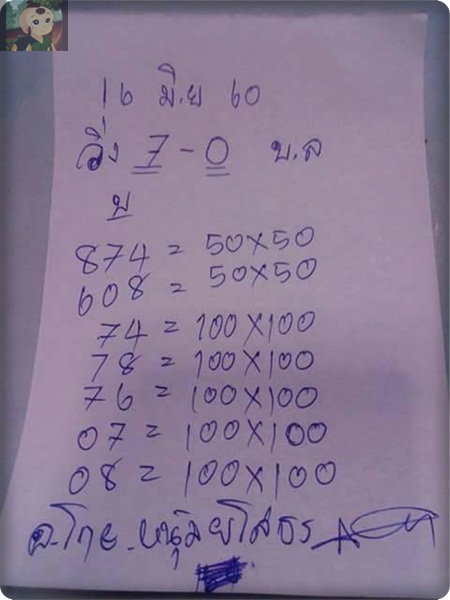 16 มิ.ย 60
วิ่ง 7-0 บ.ล
บ
874 = 50x50
608 = 50x50
74 = 100x100
78 = 100x100
76 = 100x100
07 = 100x100
08 = 100x100
หนุ่มยโสธร